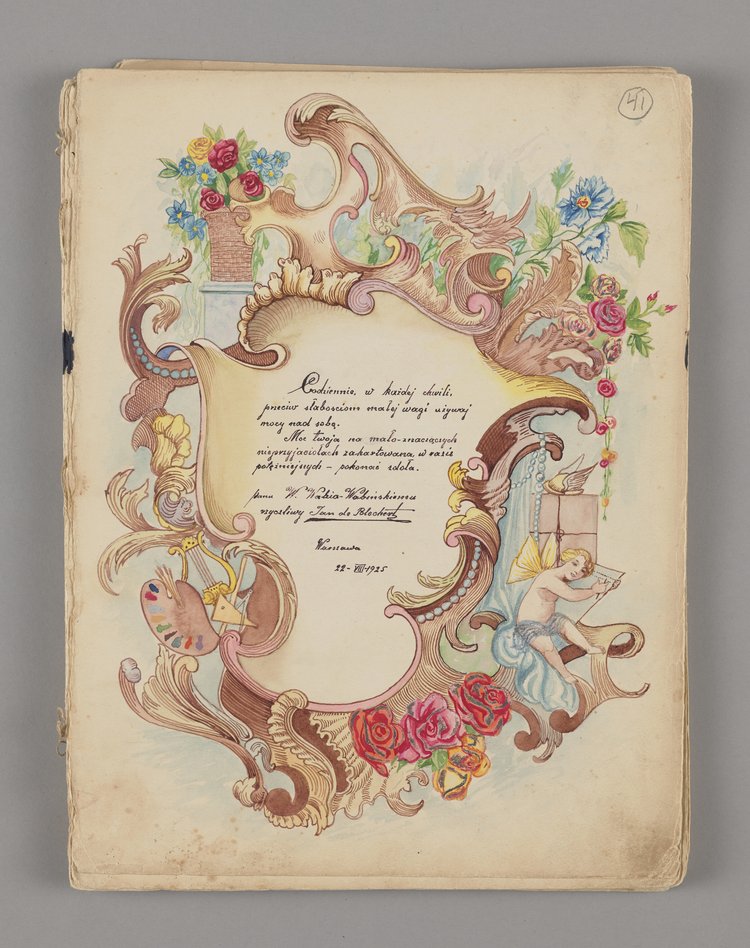 41
Codziennie, w każdej chwili,
przeciw słabościom małej wagi używaj
mocy nad sobą.
Moc twoja na mało-znaczących
nieprzyjaciołach zahartowana, w razie
potężniejszych – pokonać zdoła.
panu W. Wabia-Wabińskiemu
życzliwy Jan de Blochert
Warszawa
22-VIII-1925